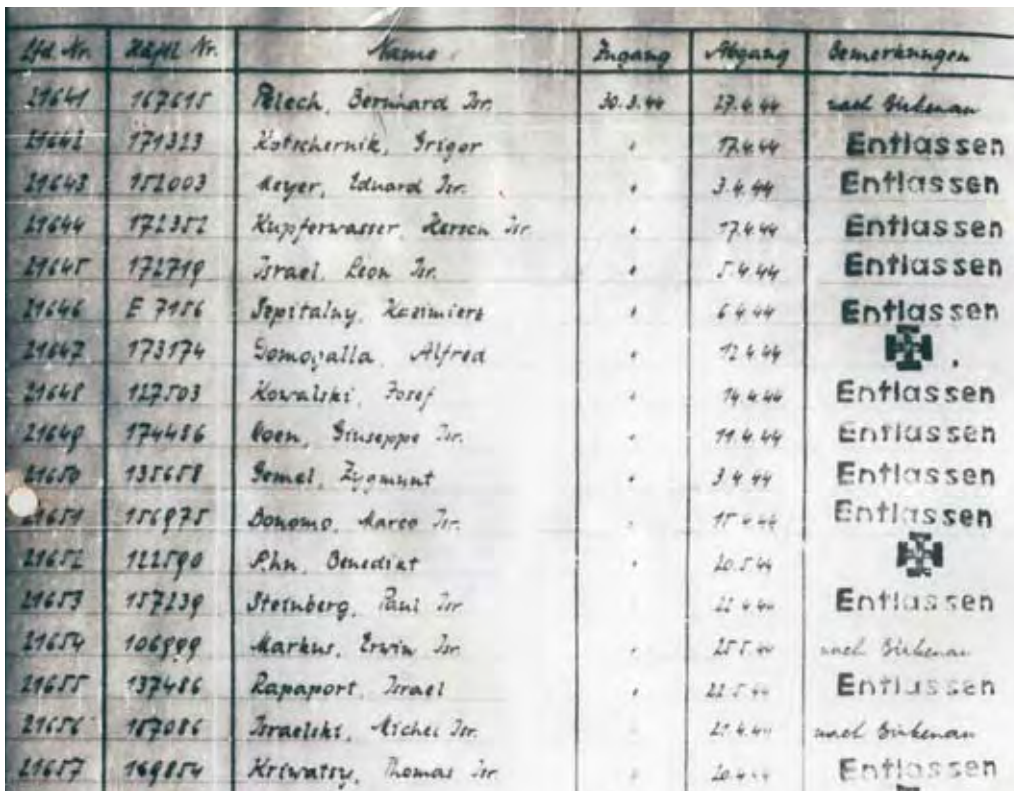 Lfd. Nr. Häftl. Nr. Name Zugang Abgang Bemerkungen
21641 167615 Bernhard Isr. 30.3.44 27.4.44 nach Birkenau
21642 171323 Kotschernik, Grigor " 17.4.44 Entlassen
21643 152003 Meyer, Eduard Isr. " 3.4.44 Entlassen
21644 172352 Kupferwasser, Hersch Isr. " 17.4.44 Entlassen
21645 172719 Israel, Leon Isr. " 5.4.44 Entlassen
21646 E 7156 Szpitalny, Kazimierz " 6.4.44 Entlassen
21647 173174 Alfred " 12.4.44
21648 127503 Kowalski, Josef " 14.4.44 Entlassen
21649 174486 Coen, Giuseppe Isr. " 11.4.44 Entlassen
21650 135658 Zygmunt " 3.4.44 Entlassen
21651 156975 Bonomo, Marco Isr. " 15.4.44 Entlassen
21652 122590 Benedikt " 20.5.44
21653 157239 Steinberg, Paul Isr. " 22.4.44 Entlassen
21654 106999 Markus, Erwin Isr. " 25.5.44 nach Birkenau
21655 137486 Rapaport, Israel " 22.5.44 Entlassen
21656 167086 Israelski, Michel Isr. " nach Birkenau
21657 169854 Thomas Isr. " Entlassen